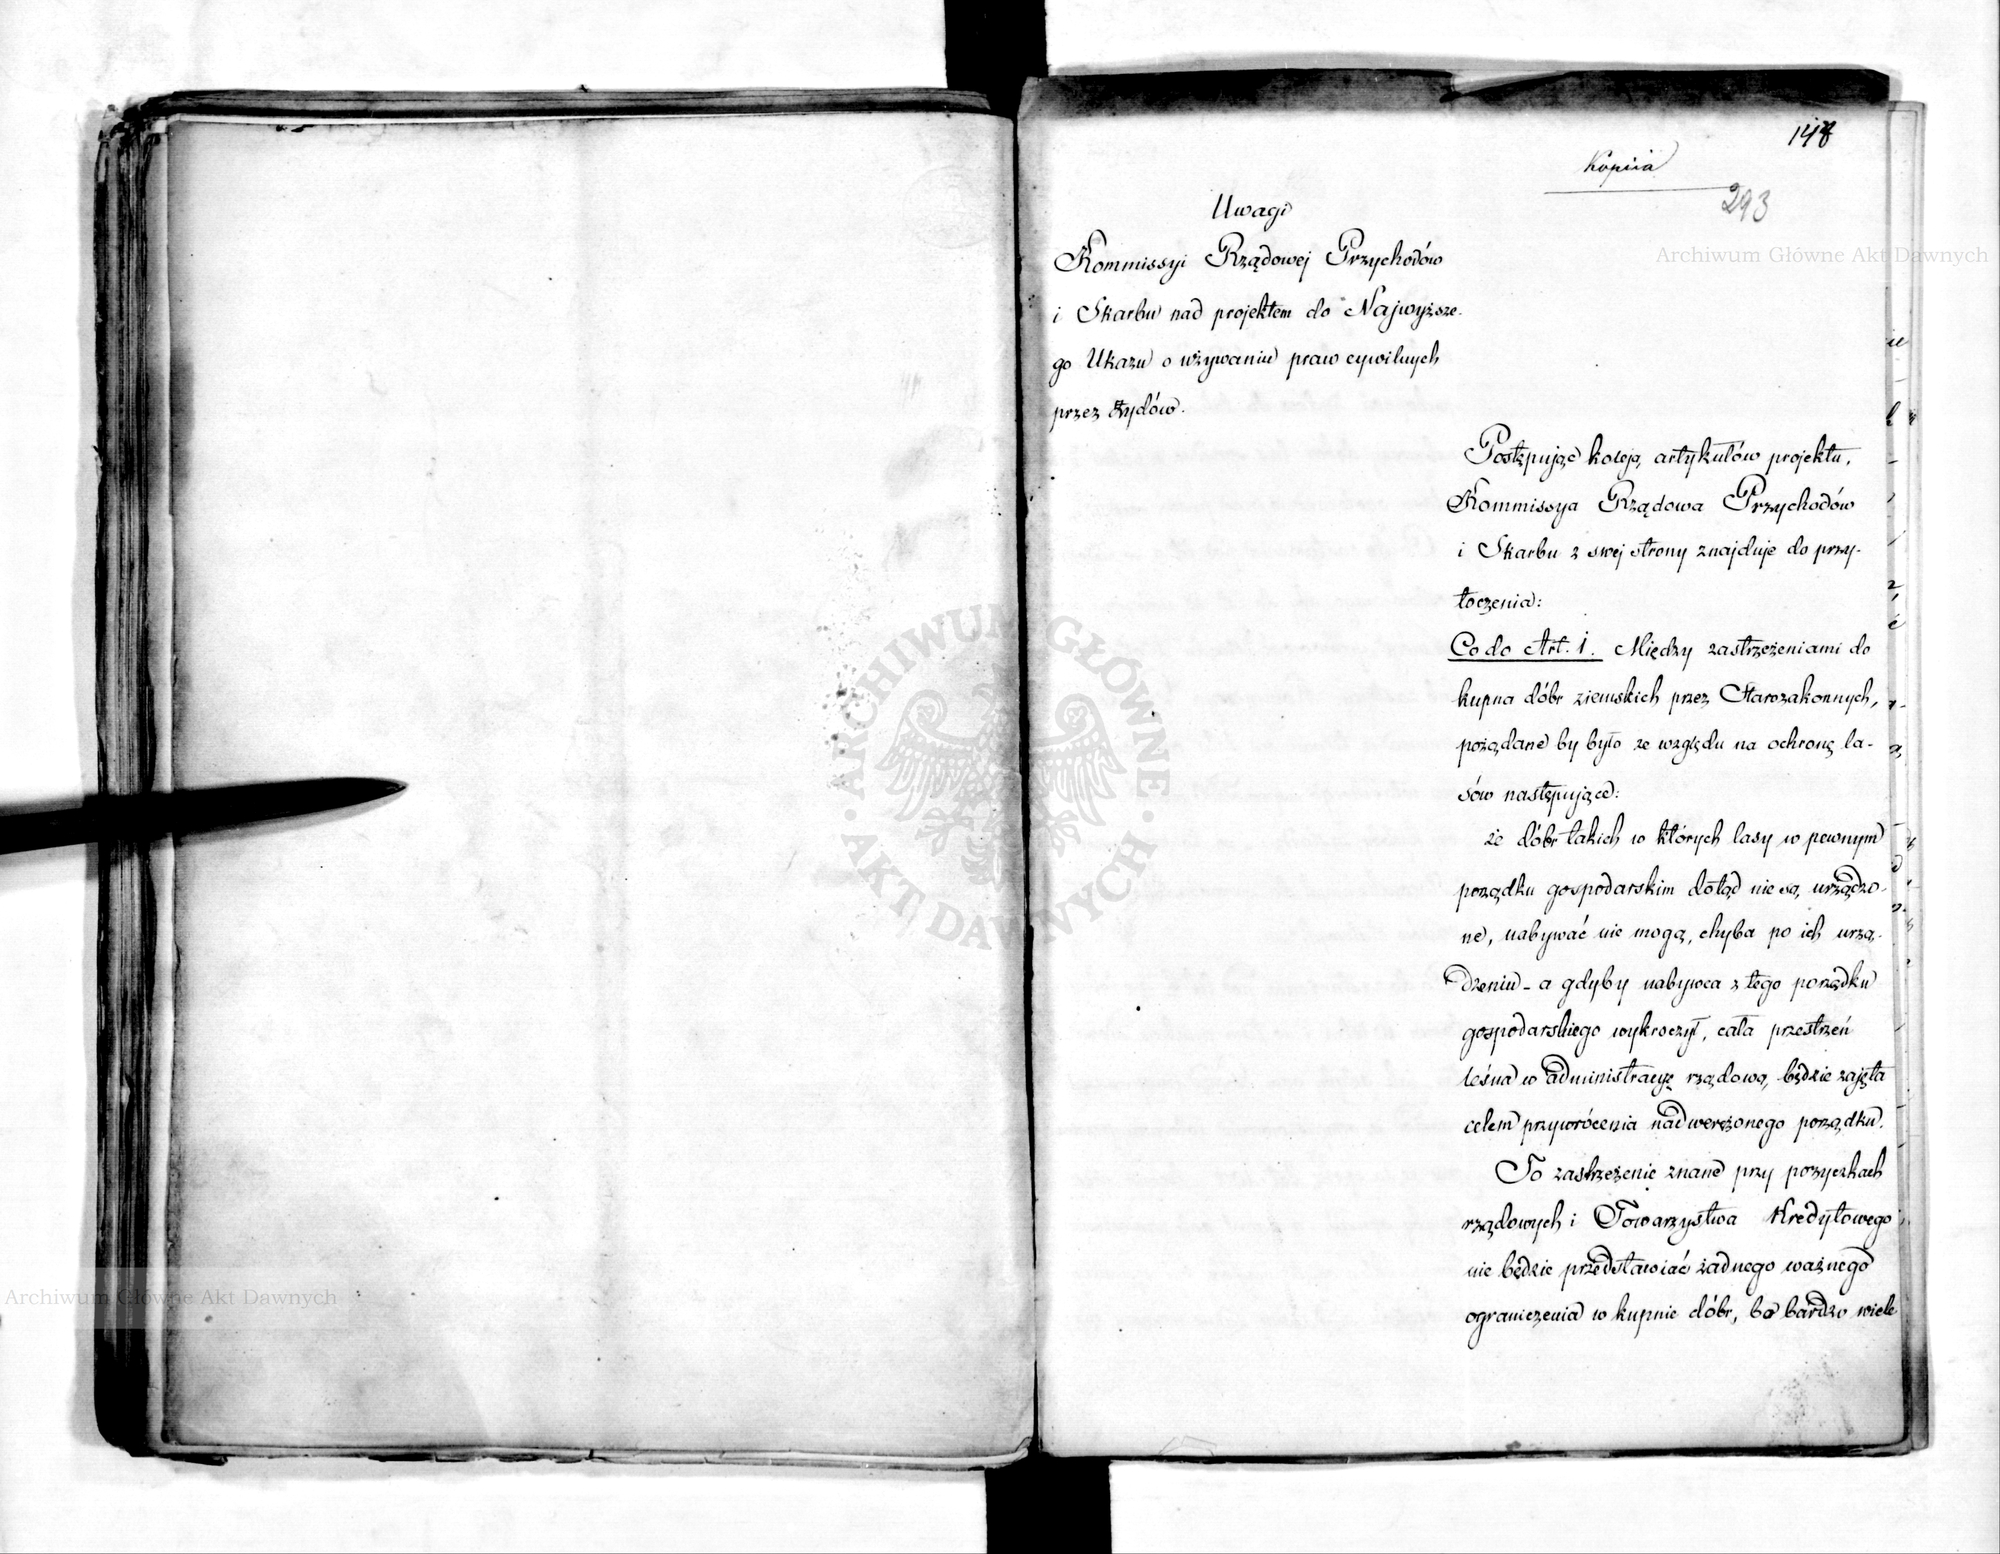 148
Kopiia
293
Uwagi
Kommissyi Rządowej Przychodów
i Skarbu nad projektem do Najwyższe-
go Ukazu o używaniu praw cywilnych
przez żydów.
Postępując koleją artykułów projektu,
Kommissya Rządowa Przychodów
i Skarbu z swej strony znajduje do przy-
toczenia:
Co do Art. 1. Między zastrzeżeniami do
kupna dóbr ziemskich przez Starozakonnych,
pożądane by było ze względu na ochronę la-
sów następujące:
że dóbr takich w których lasy w pewnym
porządku gospodarskim dotąd nie są, urządzo-
ne, nabywać nie mogą, chyba po ich urzą-
dzeniu - a gdyby nabywca z tego porządku
gospodarskiego wykroczył, cała przestrzeń
leśna w administracyę rządową, będzie zajęta
celem przywrócenia nadwerężonego porządku.
To zastrzeżenie znane przy pożyczkach
rządowych i Towarzystwa Kredytowego
nie będzie przedstawiać żadnego ważnego
ograniczenia w kupnie dóbr, bo bardzo wiele
Archiwum Główne Akt Dawnych
ARCHIWUM GŁÓWNE · AKT DAWNYCH ·
Archiwum Główne Akt Dawnych